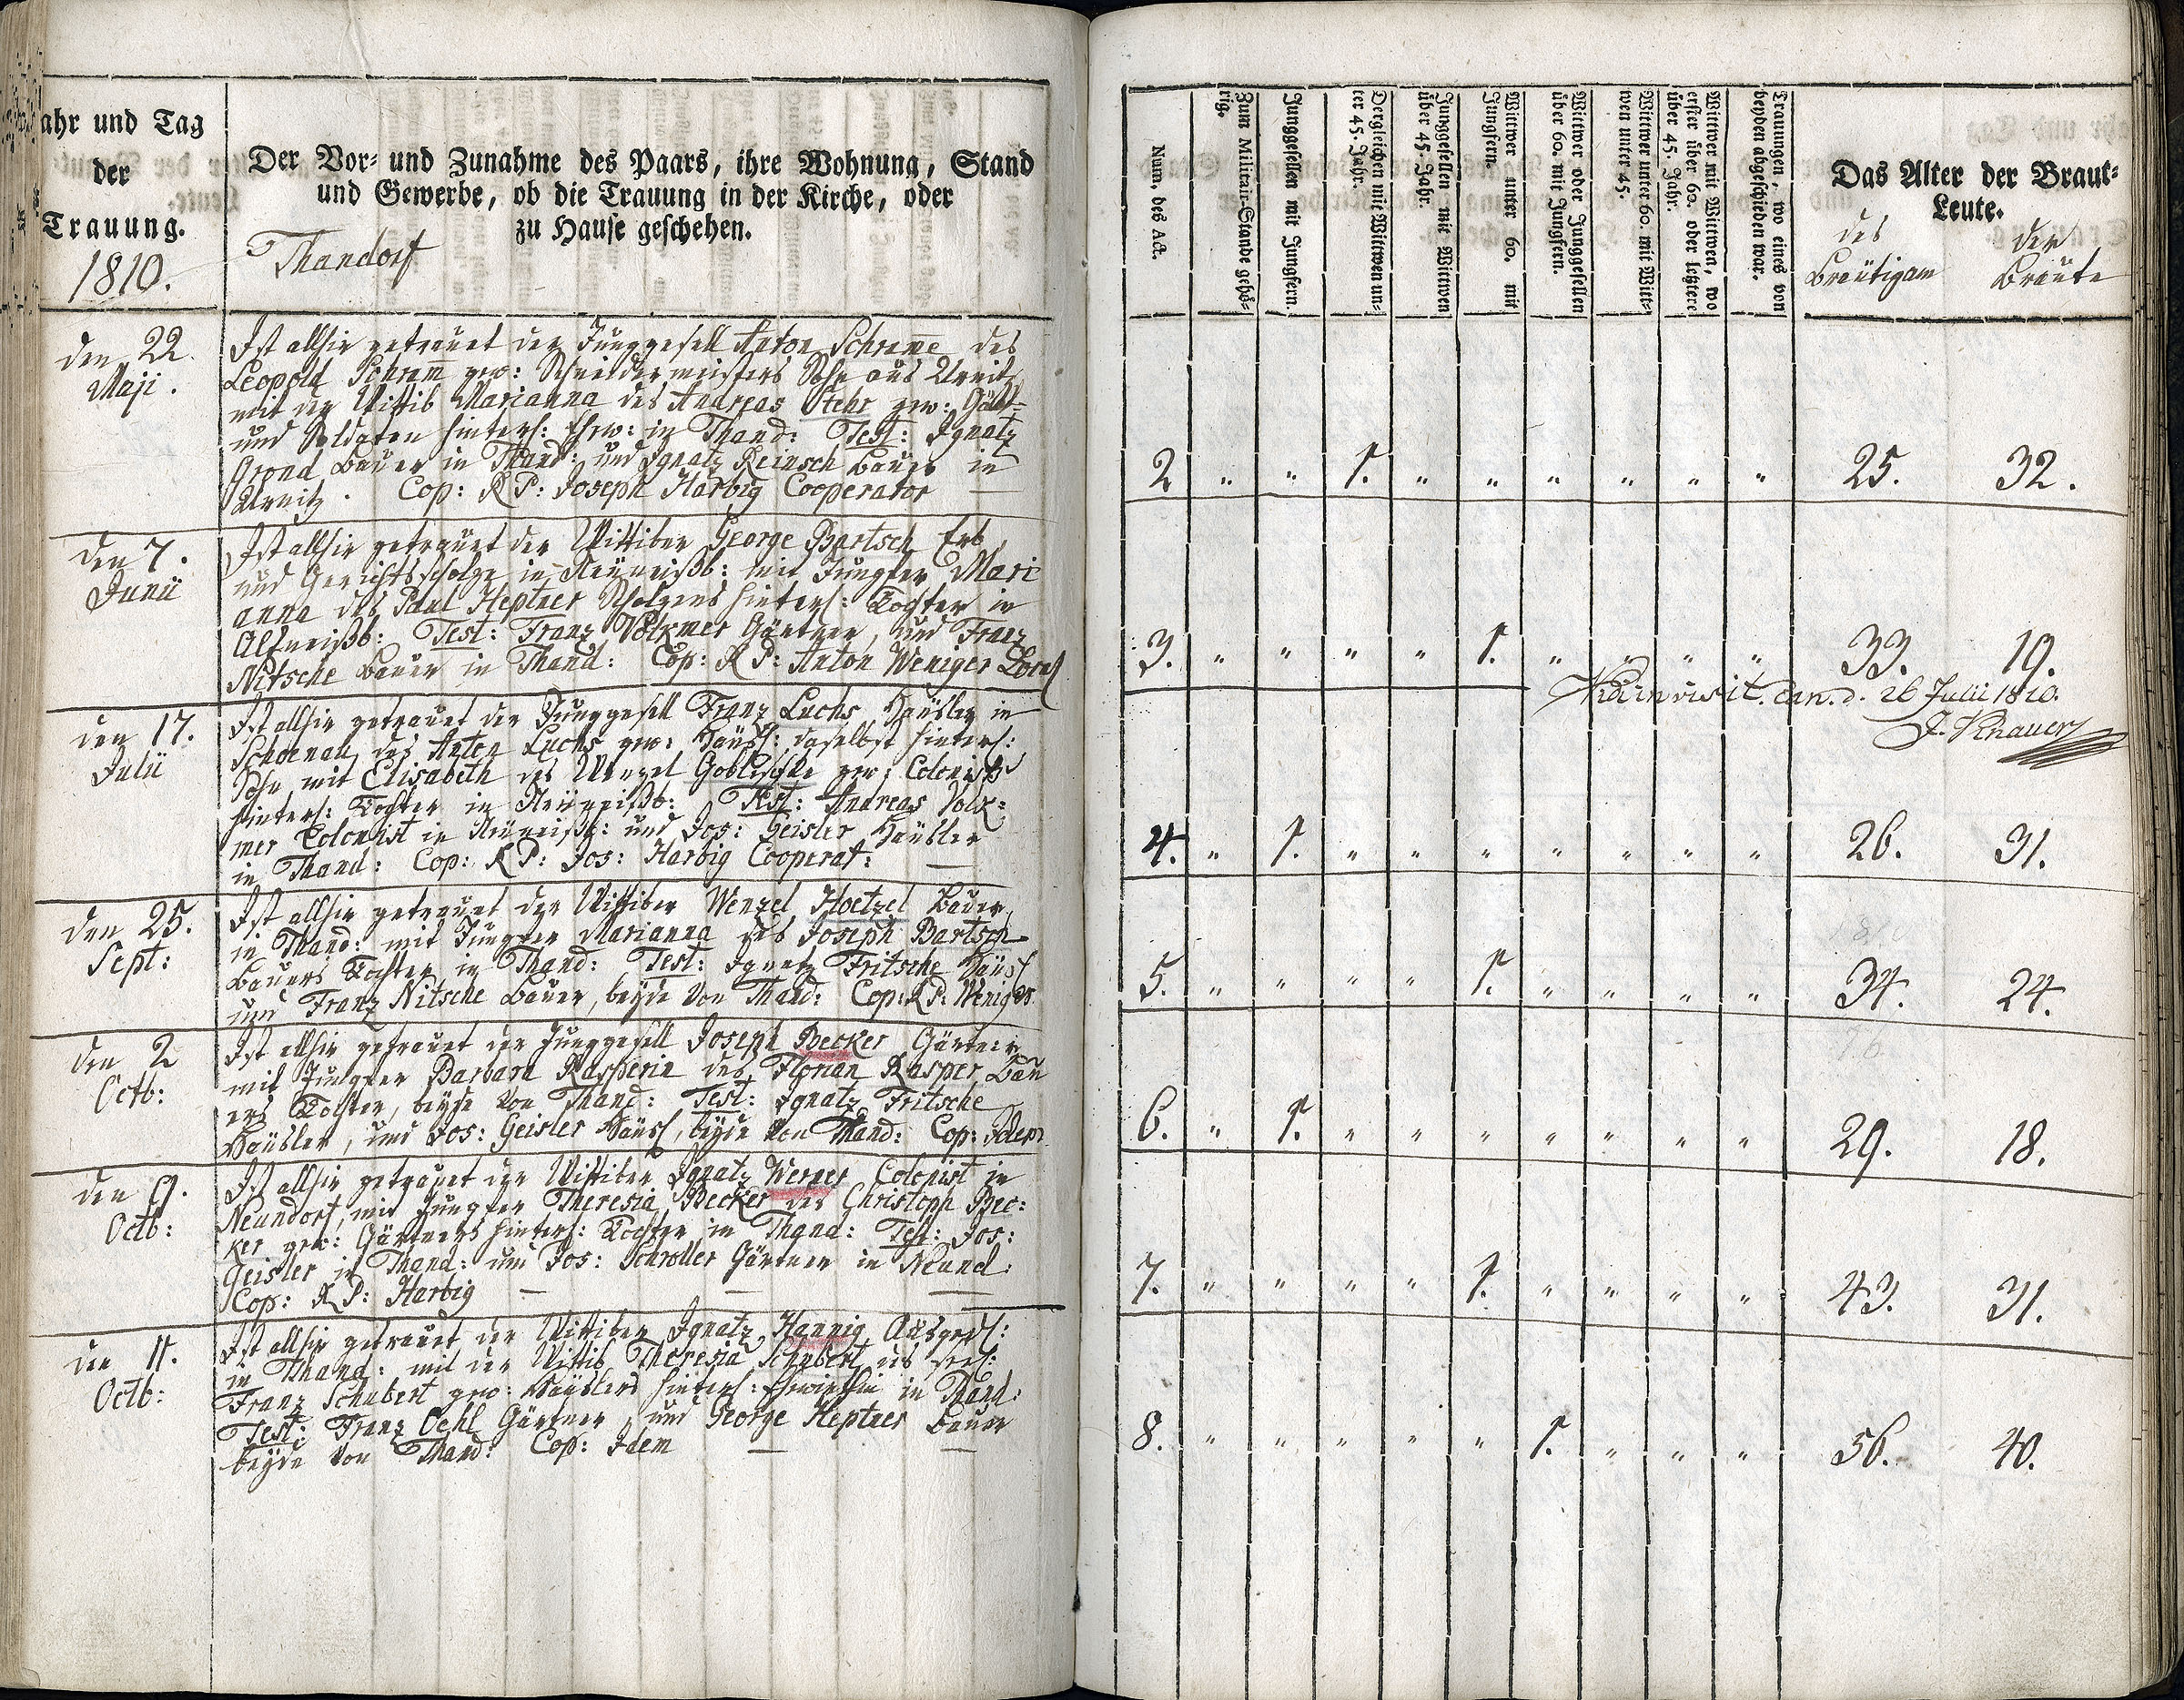 ahr und Tag
der
Trauung.
1810.
Der Vor- und Zunahme des Paars, ihre Wohnung, Stand
und Gewerbe, ob die Trauung in der Kirche, oder
zu Hause geschehen.
Thandorf
den 22.
Maji.
Ist allhir getrauet der Junggesell Anton Schrame des
Leopold Schram̅ gew: Schneidermeisters Sohn aus Urnitz
mit der Wittib Marianna des Andreas Stehr gew: Gärt-
und Soldaten hinterl: Ehew: in Thand: Test: Ignatz
Grond Bauer in Thand: und Ignatz Reinsch Bauer in
Urnitz. Cop: R P: Joseph Harbig Cooperator —
den 7.
Junii
Ist allhir getrauet der Wittiber George Bartsch Erb
und Gerichtsscholze in Neüweißb: mit Jungfer Mari
anna des Paul Heptner Scholzens hinterl: Tochter in
Altweißb: Test: Franz Volkmer Gärtner, und Franz
Nitsche Bauer in Thand: Cop: R P: Anton Weniger
den 17.
Julii
Ist allhir getrauet der Junggesell Franz Luchs Häusler in
Schoenau, des Anton Luchs gew: Häusl: daselbst hinterl:
Sohn mit Elisabeth des Wenzel Goblischke gew: Colonists
hinterl: Tochter in Neüweißb: Test: Andreas Volk=
mer Colonist in Neüweißb: und Jos: Geisler Häusler
in Thand: Cop: R P: Jos: Harbig Cooperat: —
den 25.
Sept:
Ist allhir getrauet der Wittiber Wenzel Hoetzel Bauer
in Thand: mit Jungfer Marianna des Joseph Bartsch
Bauers Tochter in Thand: Test: Ignatz Fritsche Häusl
und Franz Nitsche Bauer, beyde von Thand: Cop: R P: Weniger
den 2
Octb:
Ist allhir getrauet der Junggesell Joseph Becker Gärtner
mit Jungfer Barbara Kasperin des Florian Kasper Bau
ers Tochter, beyde von Thand: Test: Ignatz Fritsche
Häusler, und Jos: Geisler Häusl, beyde von Thand: Cop: Idem
den 9.
Octb:
Ist allhir getrauet der Wittiber Ignatz Werner Colonist in
Neundorf, mit Jungfer Theresia Becker des Christoph Bec:
ker gew: Gärtners hinterl: Tochter in Thand: Test: Jos:
Geisler in Thand: und Jos: Schroller Gärtner in Neund:
Cop: R P: Harbig — — —
den 11.
Octb:
Ist allhir getrauet der Wittiber Ignatz Hannig Ausgedl:
in Thand: mit der Wittib Theresia Schubert des seel:
Franz Schubert gew: Häuslers hinterl: Ehewirthin in Thand:
Test: Franz Oehl Gärtner, und George Heptner Bauer
beyde von Thand: Cop: Idem — —
Num, des Act.
Zum Militair-Stande gehö-
rig.
Junggesellen mit Jungfern.
Dergleichen mit Wittwen un-
ter 45. Jahr.
Junggesellen mit Wittwen
über 45. Jahr.
Wittwer unter 60. mit
Jungfern.
Wittwer oder Junggesellen
über 60. mit Jungfern.
Wittwer unter 60. mit Witt-
wen unter 45.
Wittwer mit Wittwen, wo
erster über 60. oder letztere
über 45. Jahr.
Trauungen, wo eines von
beyden abgeschieden war.
Das Alter der Braut-
Leute.
des der
Bräutigam Bräute
2 " " 1. " " " " " " 25. 32.
3. " " " " 1. " " " " 33. 19.
visit. can. d. 26 Julii 1810.
J. Knauer
4. " 1. " " " " " " " 26. 31.
5. " " " " 1. " " " " 34. 24.
6. " 1. " " " " " " " 29. 18.
7. " " " " 1. " " " " 43. 31.
8. " " " " " 1. " " " 56. 40.